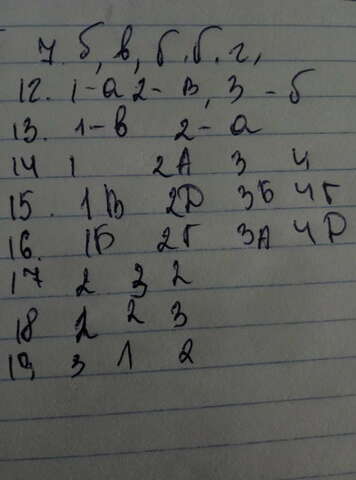 7. б, в, б. б. г,
12. 1-а 2-в, 3-б
13. 1-в 2-а
14 1 2А 3 4
15. 1В 2D 3Б 4Г
16. 1Б 2Г 3А 4D
17 2 3 2
18 2 2 3
19 3 1 2